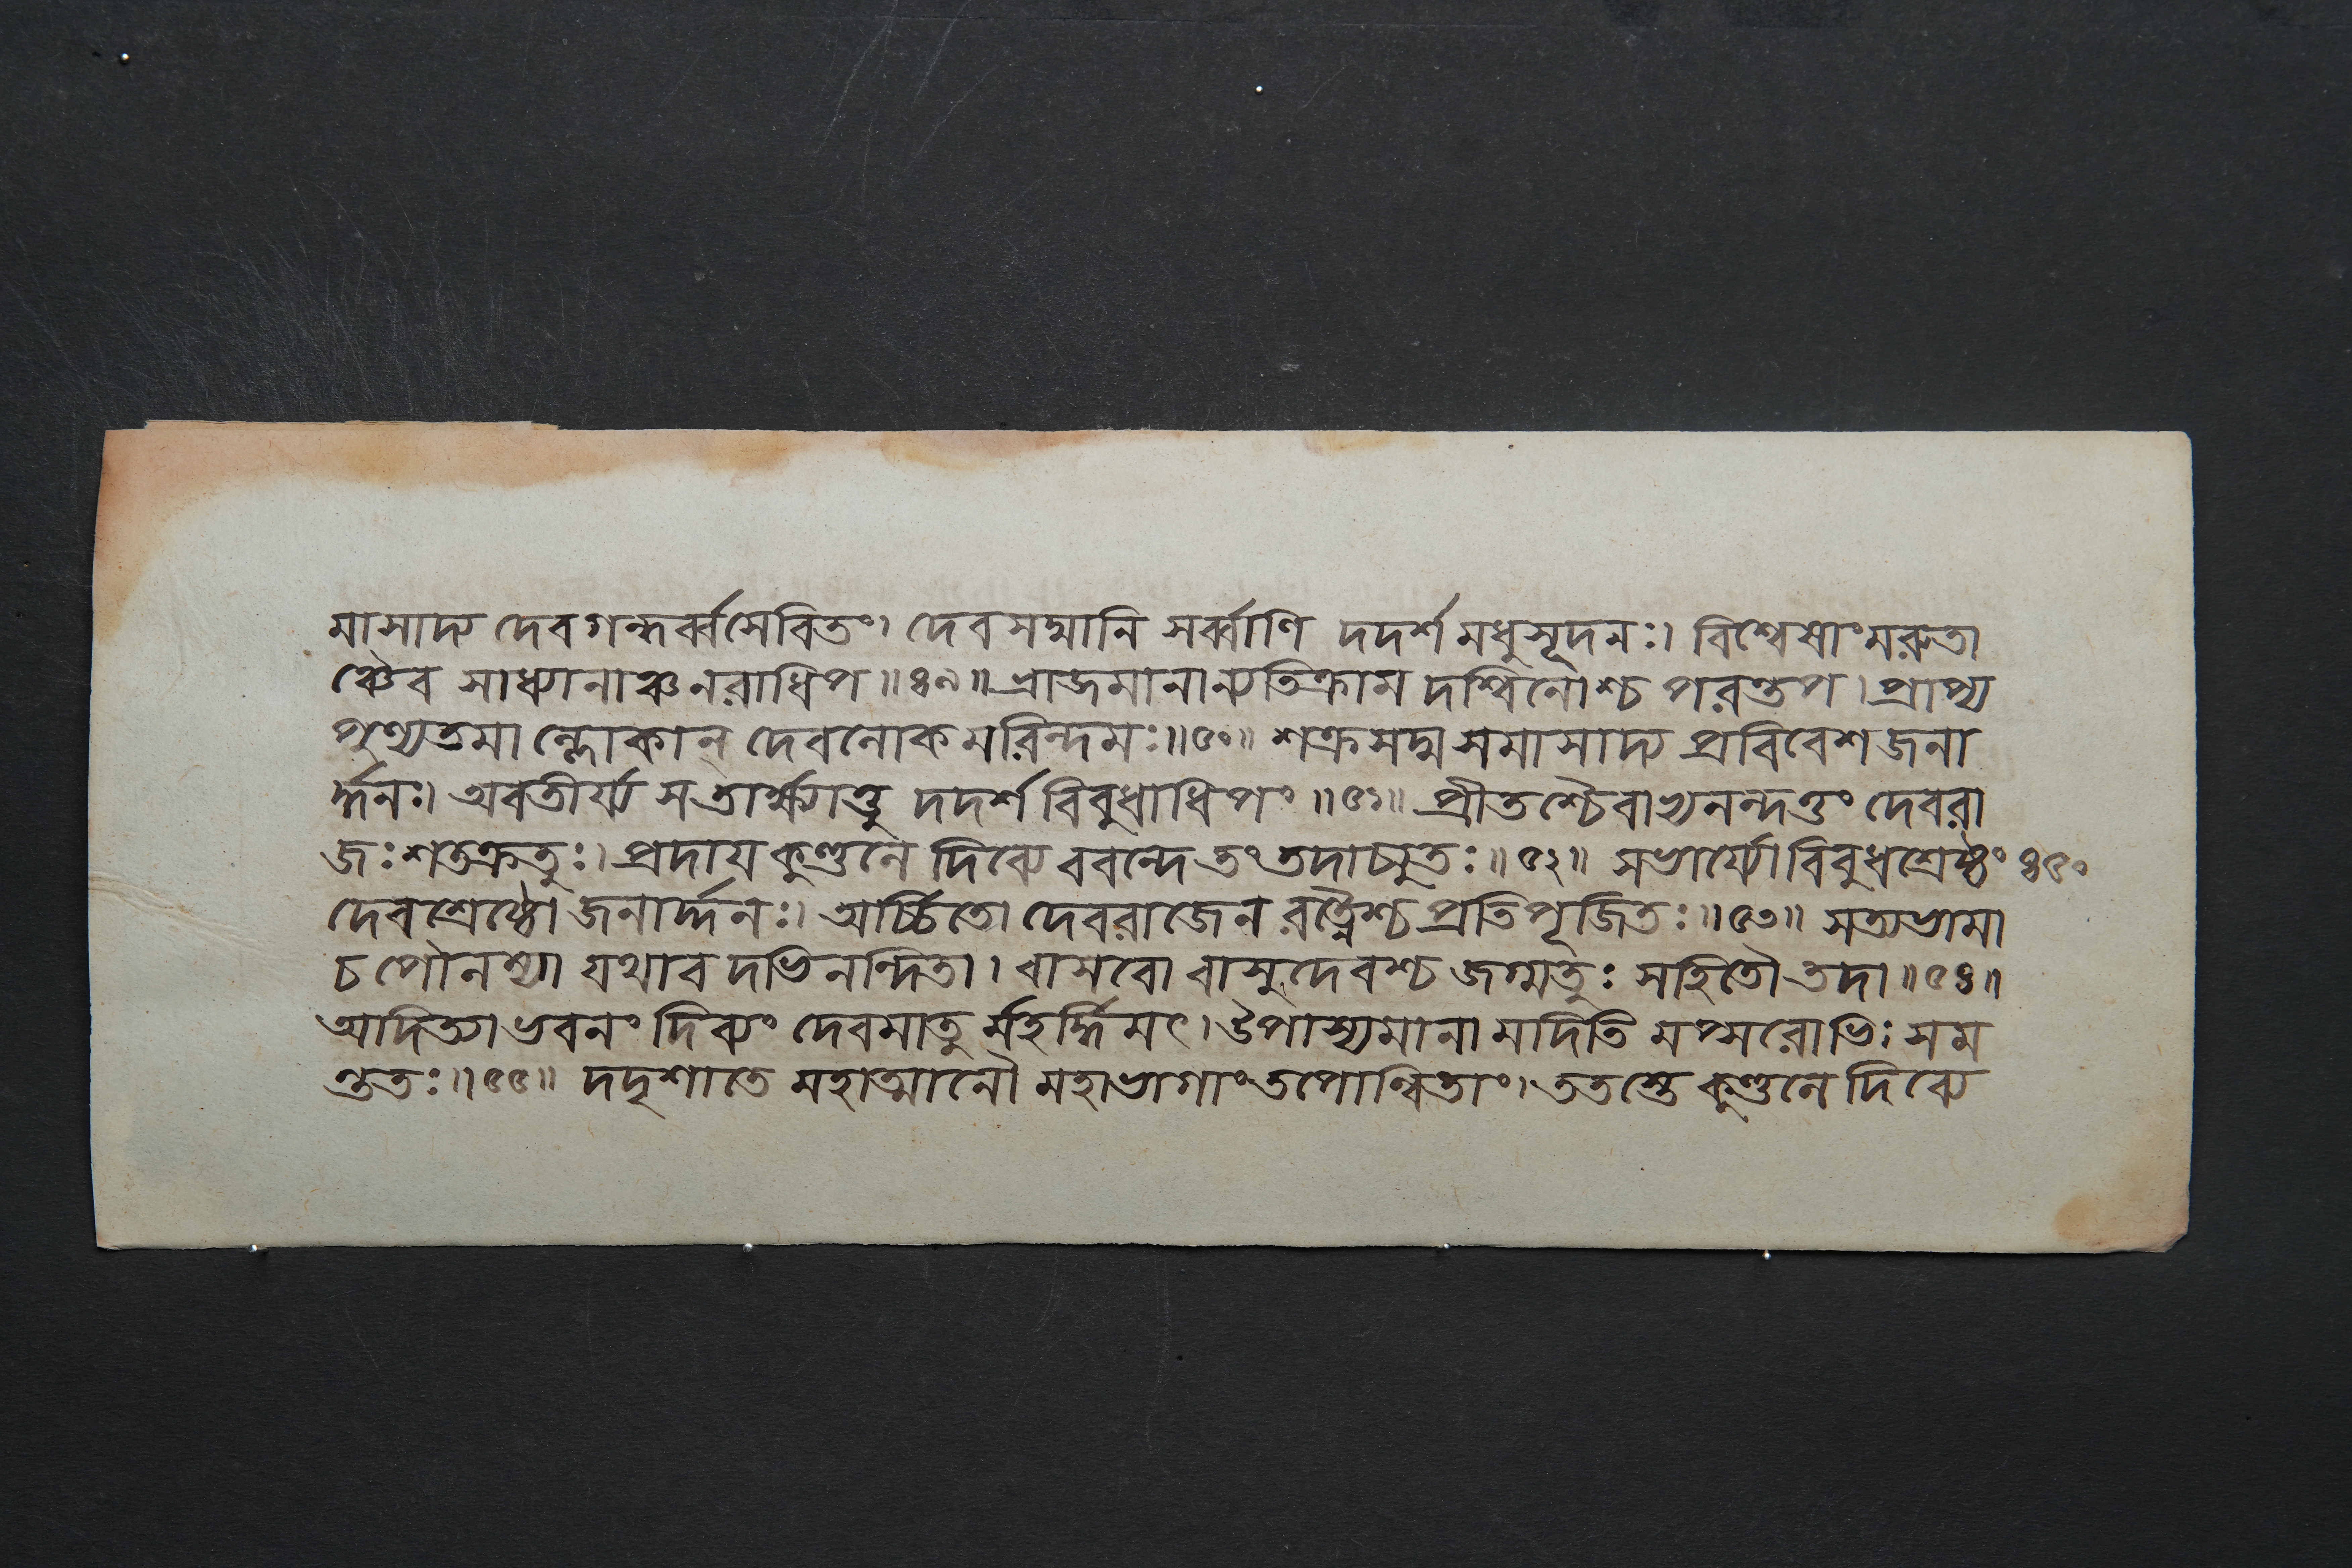 মাসাদ্য দেবগন্ধর্ব্বসেবিতং। দেবসদ্মানি সর্ব্বাণি দদর্শ মধুসূদনঃ। বিশ্বেষাং মরুতা
ঞ্চৈব সাধ্যানাঞ্চ নরাধিপ॥৪৯॥ ভ্রাজমানান্যতিক্রাম দশ্বিনোশ্চ পরন্তপ। প্রাপ্য
পুণ্যতমা ল্লোকান্ দেবলোকমরিন্দমঃ॥৫০॥ শক্রসদ্ম সমাসাদ্য প্রবিবেশ জনা
র্দ্দনঃ। অবতীর্য্য সতার্ক্ষ্যাত্তু দদর্শ বিবুধাধিপং॥৫১॥ প্রীতশ্চৈবাভ্যনন্দত্তং দেবরা
জঃ শতক্রতুঃ। প্রদায় কুণ্ডলে দিব্যে ববন্দে তং তদাচ্যুতঃ॥৫২॥ সভার্য্যো বিবুধশ্রেষ্ঠং ৪৫০
দেবশ্রেষ্ঠো জনার্দ্দনঃ। অর্চ্চিতো দেবরাজেন রত্নৈশ্চ প্রতিপূজিতঃ॥৫৩॥ সত্যভামা
চ পৌলম্যা যথাব দভিনন্দিতা। বাসবো বাসুদেবশ্চ জগ্মতুঃ সহিতৌ তদা॥৫৪॥
আদিত্যা ভবনং দিব্যং দেবমাতু র্মহর্দ্ধিমৎ। উপাস্যমানা মদিতি মপ্সরোভিঃ সম
ন্ততঃ॥৫৫॥ দদৃশাতে মহাত্মানৌ মহাভাগাং তপোন্বিতাং। ততস্তে কুণ্ডলে দিব্যে